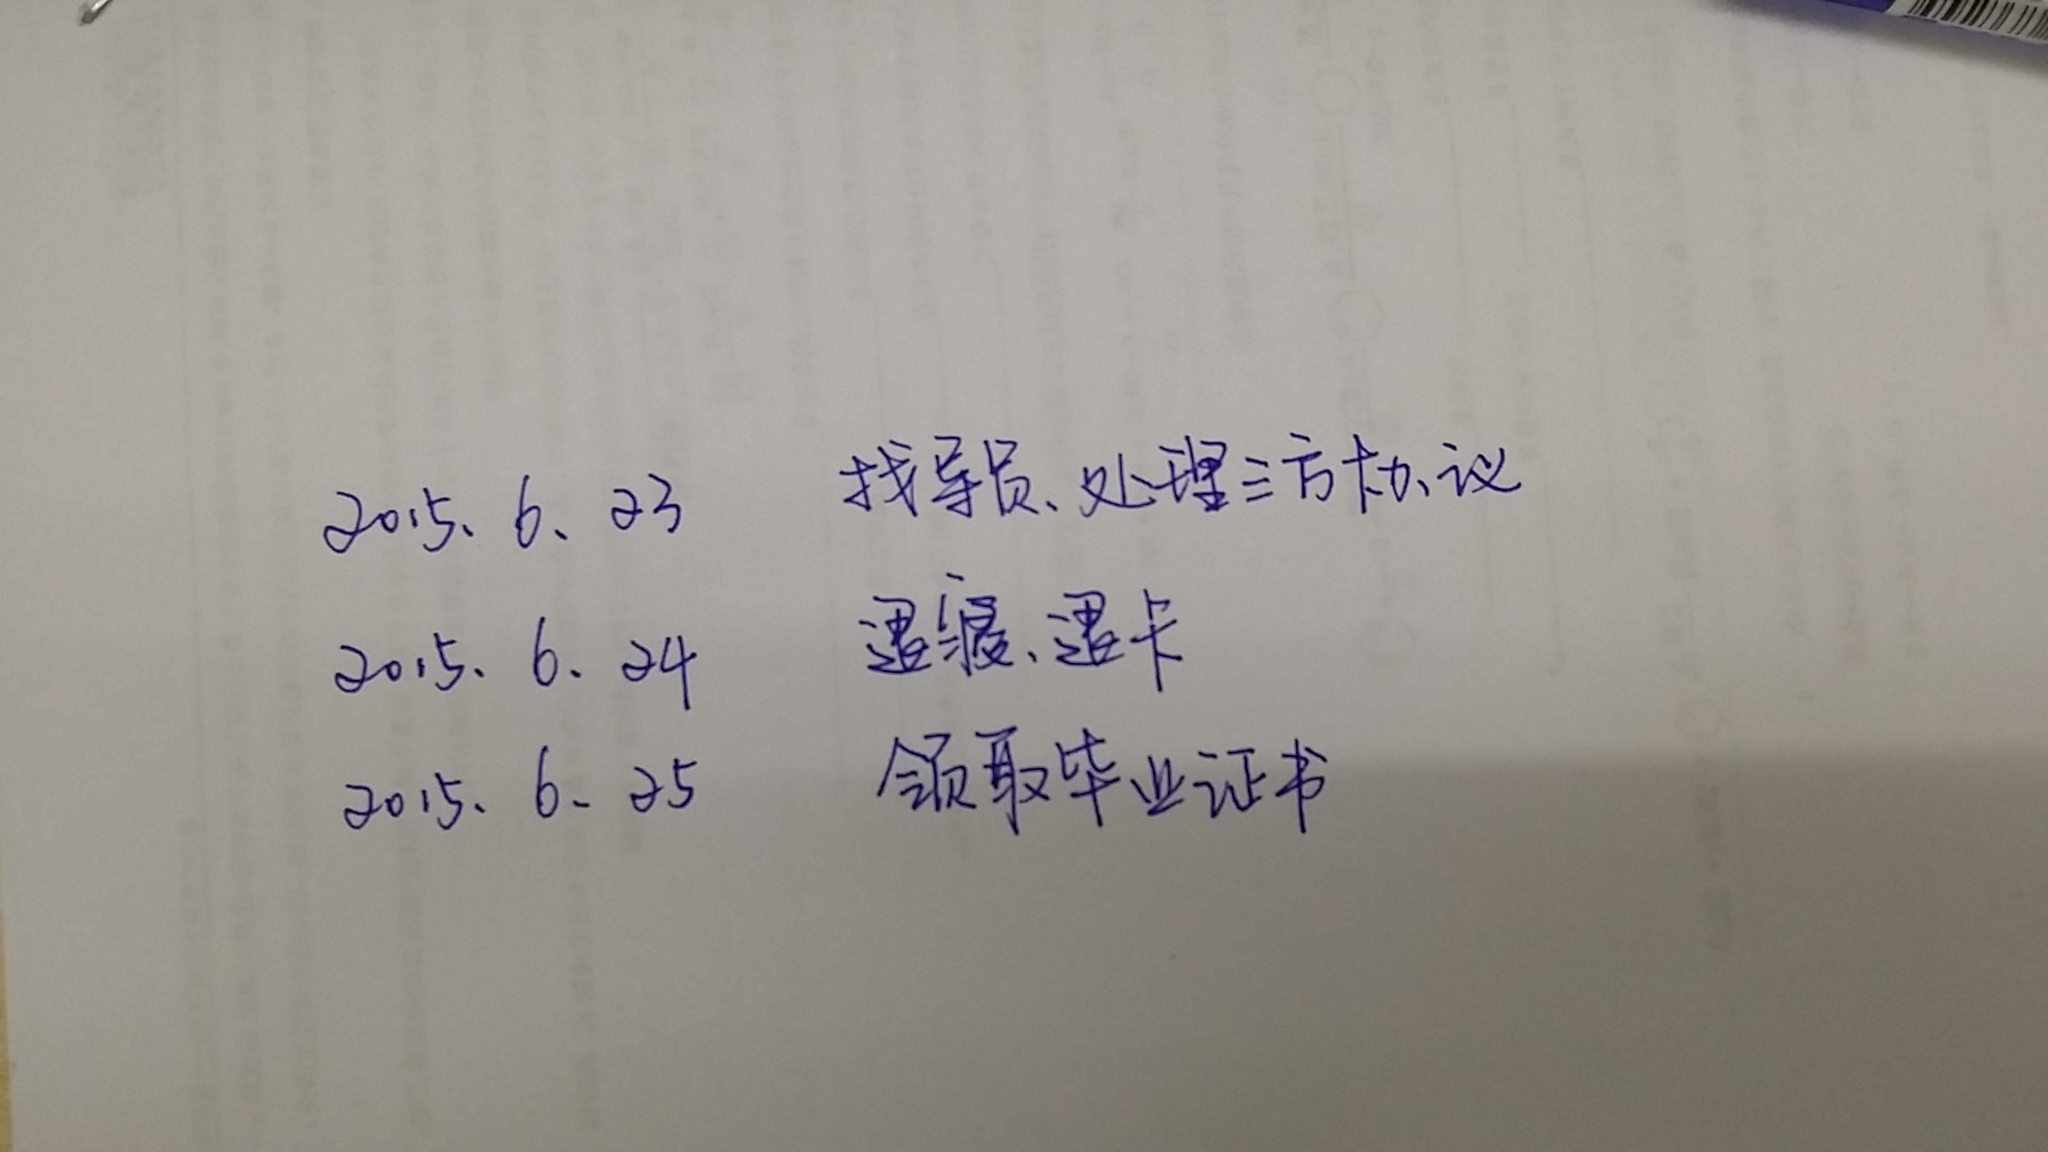 2015、6、23 找导员、处理三方协议
2015、6、24 退寝、退卡
2015、6、25 领取毕业证书